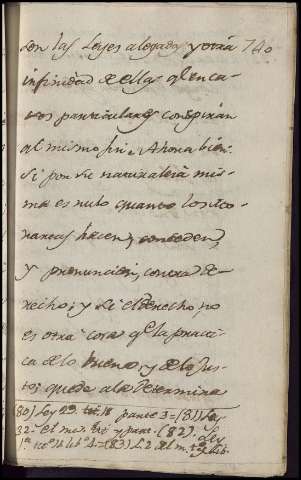 son las Leyes alegadas y otra 740
infinidad de ellas qe. en ca-
sos particulares conspiran
al mismo fin. Ahora bien.
Si por su naturaleza mis-
ma es nulo quanto los Mo-
narcas hacen, conceden,
y pronuncian, contra de-
recho; y si el derecho no
es otra cosa qe. la practi-
ca de lo bueno, y de lo jus-
to; quede a la determina
(80) Ley 29. tit. 18 parte 3 = (81) Ley
32. el mis. tit. y part. (82). Ley
1a. tto. 4. lib. 4. = (83) L. 2 del m. tt. y lib.